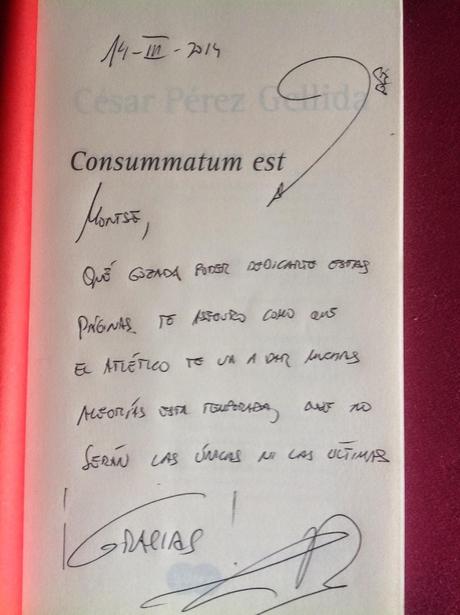 14-III-2014
César Pérez Gellida
Consummatum est
Montse,
Qué gozada poder dedicarte estas
páginas. Te aseguro como que
el Atlético te va a dar muchas
alegrías esta temporada, que no
serán las únicas ni las últimas
¡Gracias!